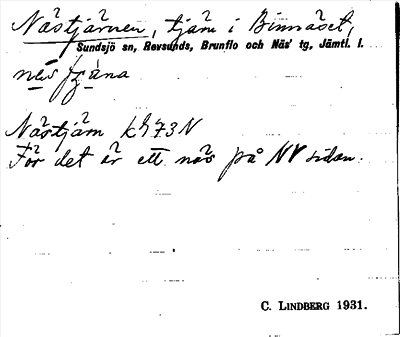 Nästjärnen, tjärn i Binnäset,
Sundsjö sn, Revsunds, Brunflo och Näs' tg, Jämtl. l.
Nästjärn kh73N
För det är ett näs på NV sidan.
C. LINDBERG 1931.